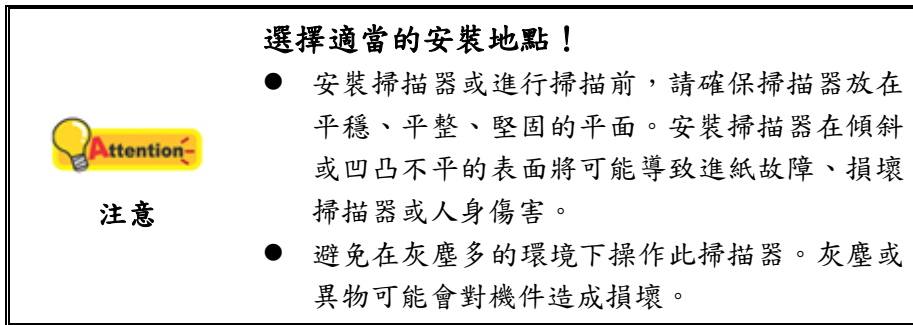 選擇適當的安裝地點！
● 安裝掃描器或進行掃描前，請確保掃描器放在
平穩、平整、堅固的平面。安裝掃描器在傾斜
或凹凸不平的表面將可能導致進紙故障、損壞
掃描器或人身傷害。
● 避免在灰塵多的環境下操作此掃描器。灰塵或
異物可能會對機件造成損壞。
Attention
注意